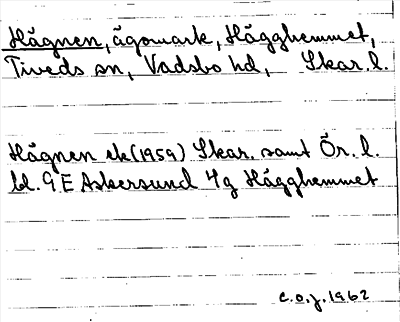 Hägnen, ägomark, Hägghemmet,
Tiveds sn, Vadsbo hd, Skar. l.
Hägnen ek (1959) Skar. samt Ör. l.
bl. 9 E Askersund 4g Hägghemmet
C.O.J. 1962